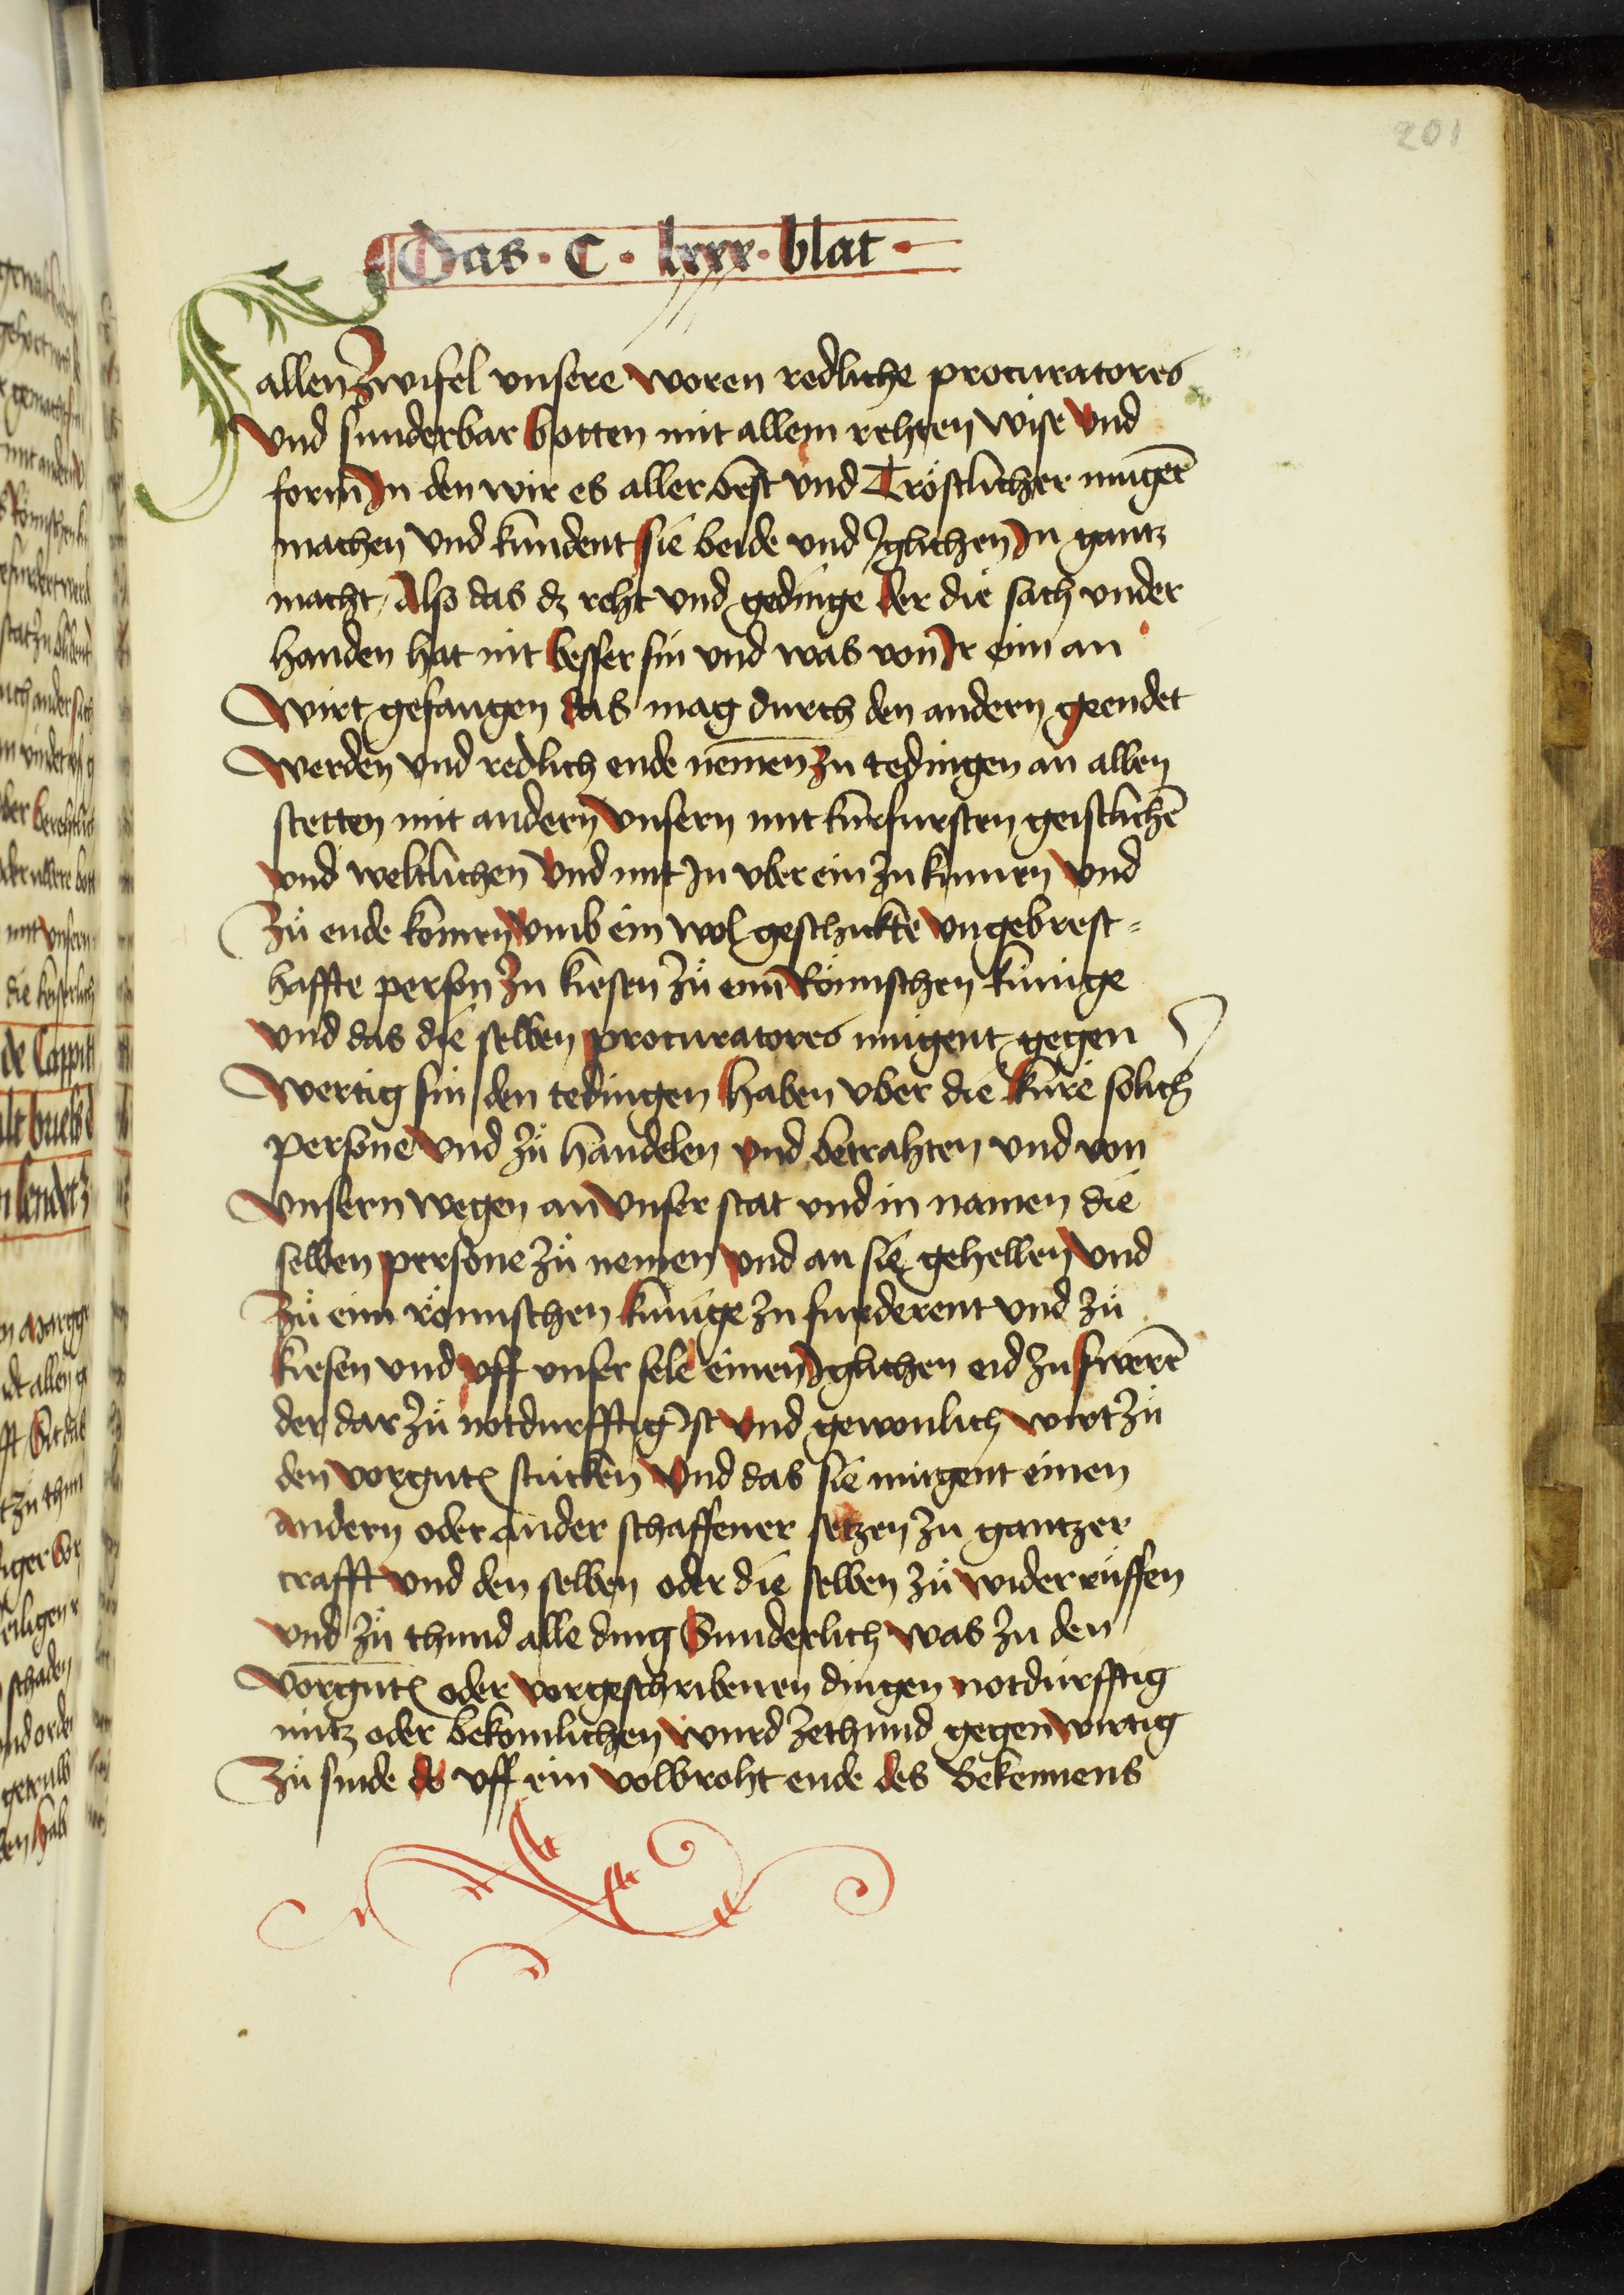 201
Das · C · lxxx · blat ·
allen Zwifel vnsere woren redliche procuratores
vnd sunderbar botten mit allem rehten wise vnd
form Jn den wir es aller best vnd Tröstlicher mugē
machen vnd kundent sie beide vnd Jglichen Jn gantz
macht / Also das dz reht vnd gedinge der die sach vnder
handen hat nit besser sin vnd was von Jr eim an
Wirt gefangen das mag durch den andern geendet
Werden vnd redlich ende nemen zu tedingen an allen
stetten mit andern vnsern mit kurfursten geistlichē
vnd weltlichen vnd mit Jn vber ein zu kumen vnd
Zů ende komen vmb ein wol geschickte vngebrest=
haffte person zu kiesen zů eim Römschen kunige
vnd das die selben procuratores mugent gegen
Wertig sin den tedingen haben vber die kure solich
persone vnd zů handelen vnd betrahten vnd von
Vnsern wegen an vnser stat vnd in namen die
selben persone zů nemen vnd an sie gehellen vnd
Zů eim römschen kunige zu furderent vnd zů
kiesen vnd vff vnser sele einen Jglichen eid zu swerē
der dar zů notdurfftig Jst vnd gewonlich wirt zů
den vorgnt stucken vnd das sie mugent einen
andern oder ander schaffener setzen zu gantzer
crafft vnd den selben oder die selben zů widerrůffen
vnd zů thund alle ding Sunderlich was zu den
Vorgnt oder vorgeschribenen dingen notdurfftig
nutz oder bekomlichen wurd zethund gegenwirtig
Zů sinde de vff ein volbroht ende des Bekennens